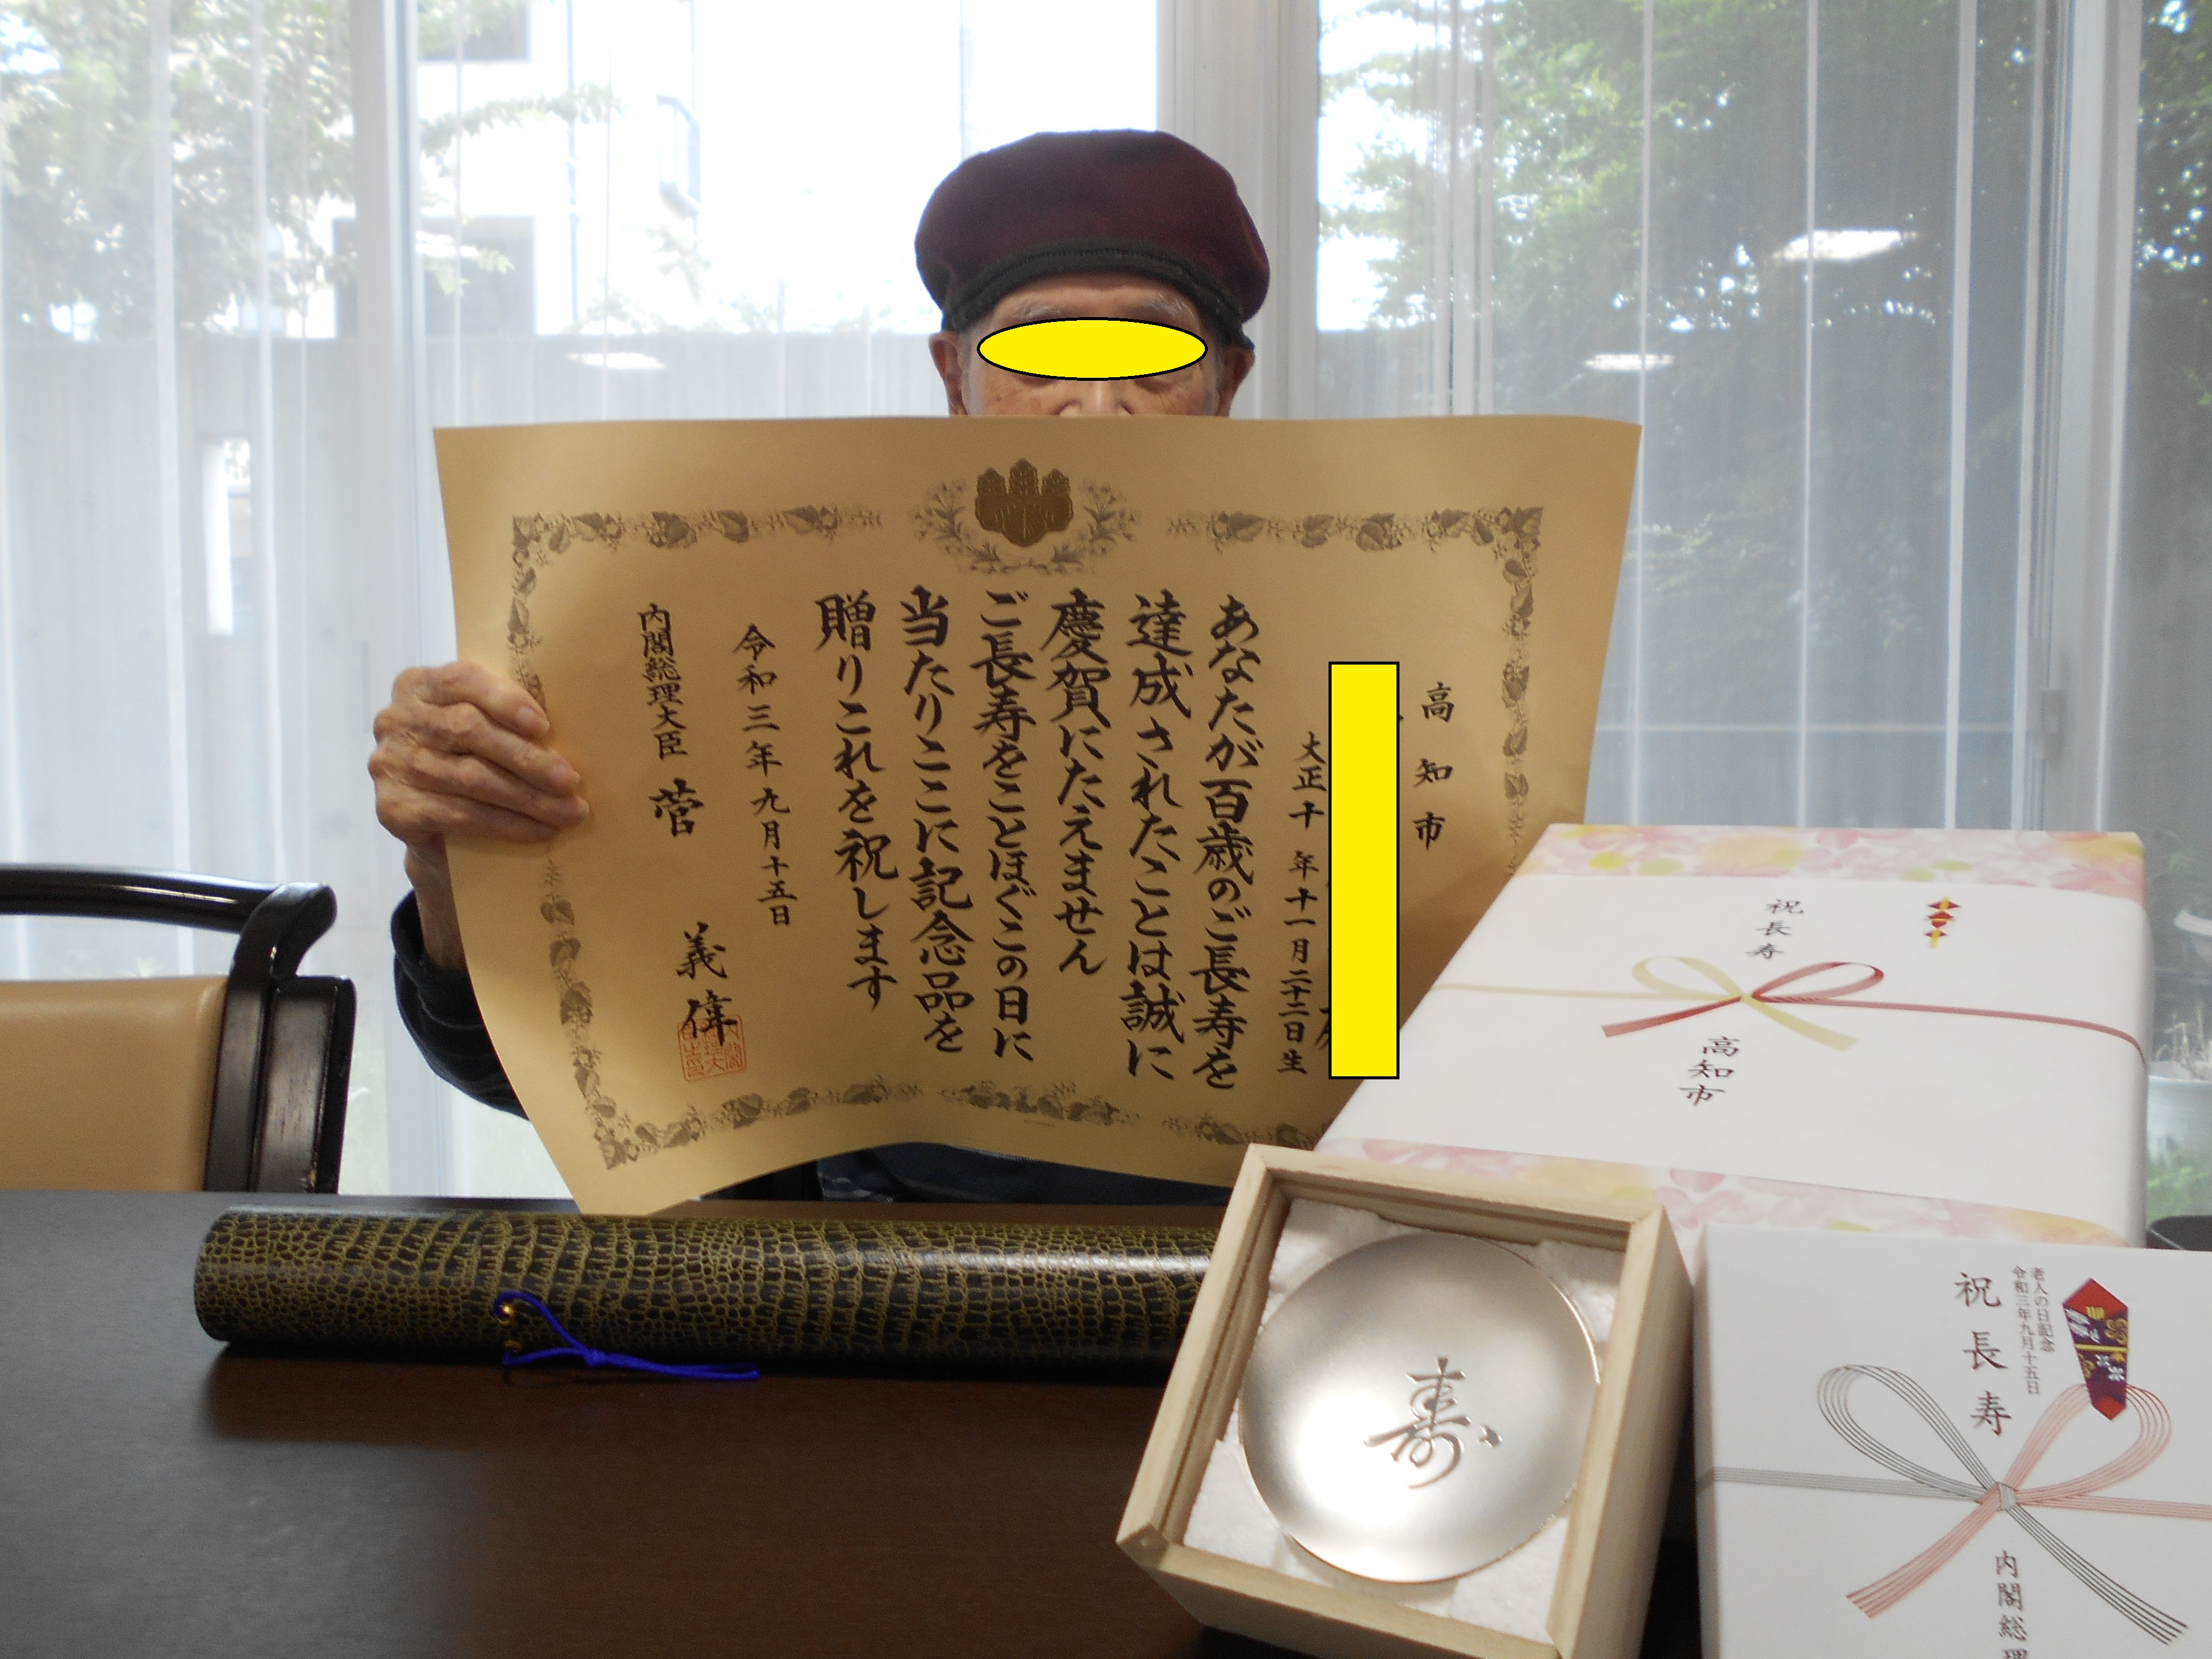 高知市
大正十年十一月二十二日生
あなたが百歳のご長寿を
達成されたことは誠に
慶賀にたえません
ご長寿をことほぐこの日に
当たりここに記念品を
贈りこれを祝します
令和三年九月十五日
内閣総理大臣 菅 義偉
祝長寿
高知市
寿
老人の日記念
令和三年九月十五日
祝長寿
内閣総理